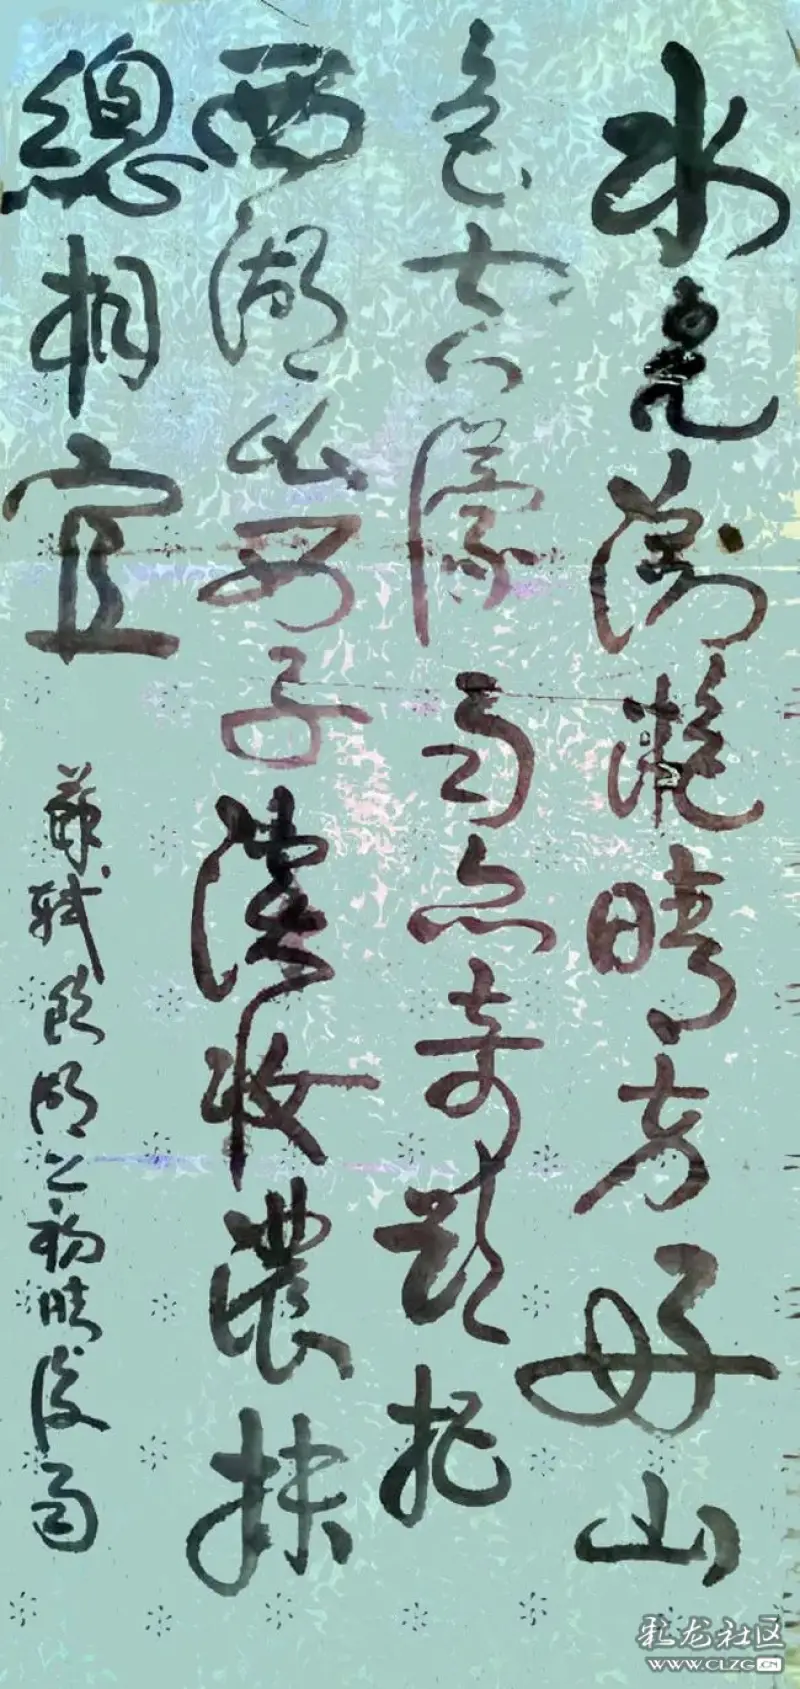 水光潋滟晴方好山
色空濛雨亦奇欲把
西湖比西子淡妆濃抹
總相宜
蘇軾飲湖上初晴後雨
彩龙社区
WWW.CLZG.CN